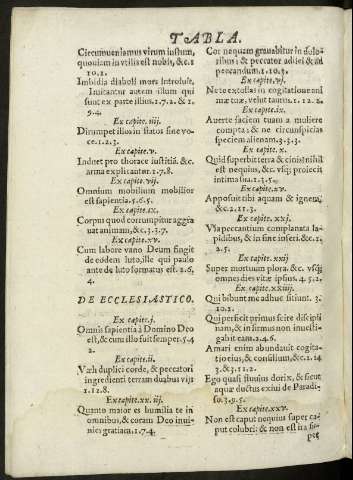 TABLA.
Circumueniamus virum iustum,
quoniam inutilis est nobis, &c. 1
10.1.
Imbidia diaboli mors introiuit.
Imitantur autem illum qui
sunt ex parte illius. 1.7.2. & 1.
9.4.
Ex capite. iiij.
Dirumpet illos inflatos sine vo-
ce. 1.2.3.
Ex capite. v.
Induet pro thorace iustitiã. &c.
arma explicatur. 1.7.8.
Ex capite. vij.
Omnium mobilium mobilior
est sapientia. 5.6.5.
Ex capite. ix.
Corpus quod corrumpitur aggra
uat animam, &c. 3.3.7.
Ex capite. xv.
Cum labore vano Deum fingit
de eodem luto, ille qui paulo
ante de luto formatus est. 2.6.
4.
DE ECCLESIASTICO.
Ex capite. j.
Omnis sapientia à Domino Deo
est, & cum illo fuit semper. 5.4
2.
Ex capite. ii.
Væh duplici corde, & peccatori
ingredienti terram duabus vijs
1.12.8.
Ex capite. iij.
Quanto maior es humilia te in
omnibus, & coram Deo inui-
nies gratiam. 1.7.4.
Cor nequam grauabitur in dolo-
ribus; & peccator adijciet &
peccandum. 1.10.3.
Ex capite. vj.
Ne te extollas in cogitatione ani
mæ tuæ, velut tautus. 1.12.2.
Ex capite. ix.
Auerte faciem tuam a muliere
compta: & ne circunspicias
speciem alienam. 3.3.3.
Ex capite. x.
Quid superbit terra & cinis? nihil
est nequius, &c. vsq; proiecit
intima sua. 1.3.5.
Ex capite. xv.
Apposuit tibi aquam & ignem,
&c. 2.11.3.
Ex capite. xxj.
Via peccantium complanata la-
pidibus, & in fine inferi. &c. 1.
2.5.
Ex capite. xxij
Super mortuum plora. &c. vsq;
omnes dies vitæ ipsius. 4.5.2.
Ex capite. xxiiij.
Qui bibunt me adhuc sitiunt. 3.
10.1.
Qui perficit primus scire discipli
nam, & infirmus non inuesti-
gabit eam. 1.4.6.
A mari enim abundauit cogita-
tio eius, & consilium, &c. 1.14
3. & 3.11.2.
Ego quasi fluuius dorix, & sicut
aquæ ductus exiui de Paradi-
so. 3.9.5.
Ex capite. xxv.
Non est caput nequius super ca-
put colubri: & non est ira su-
per